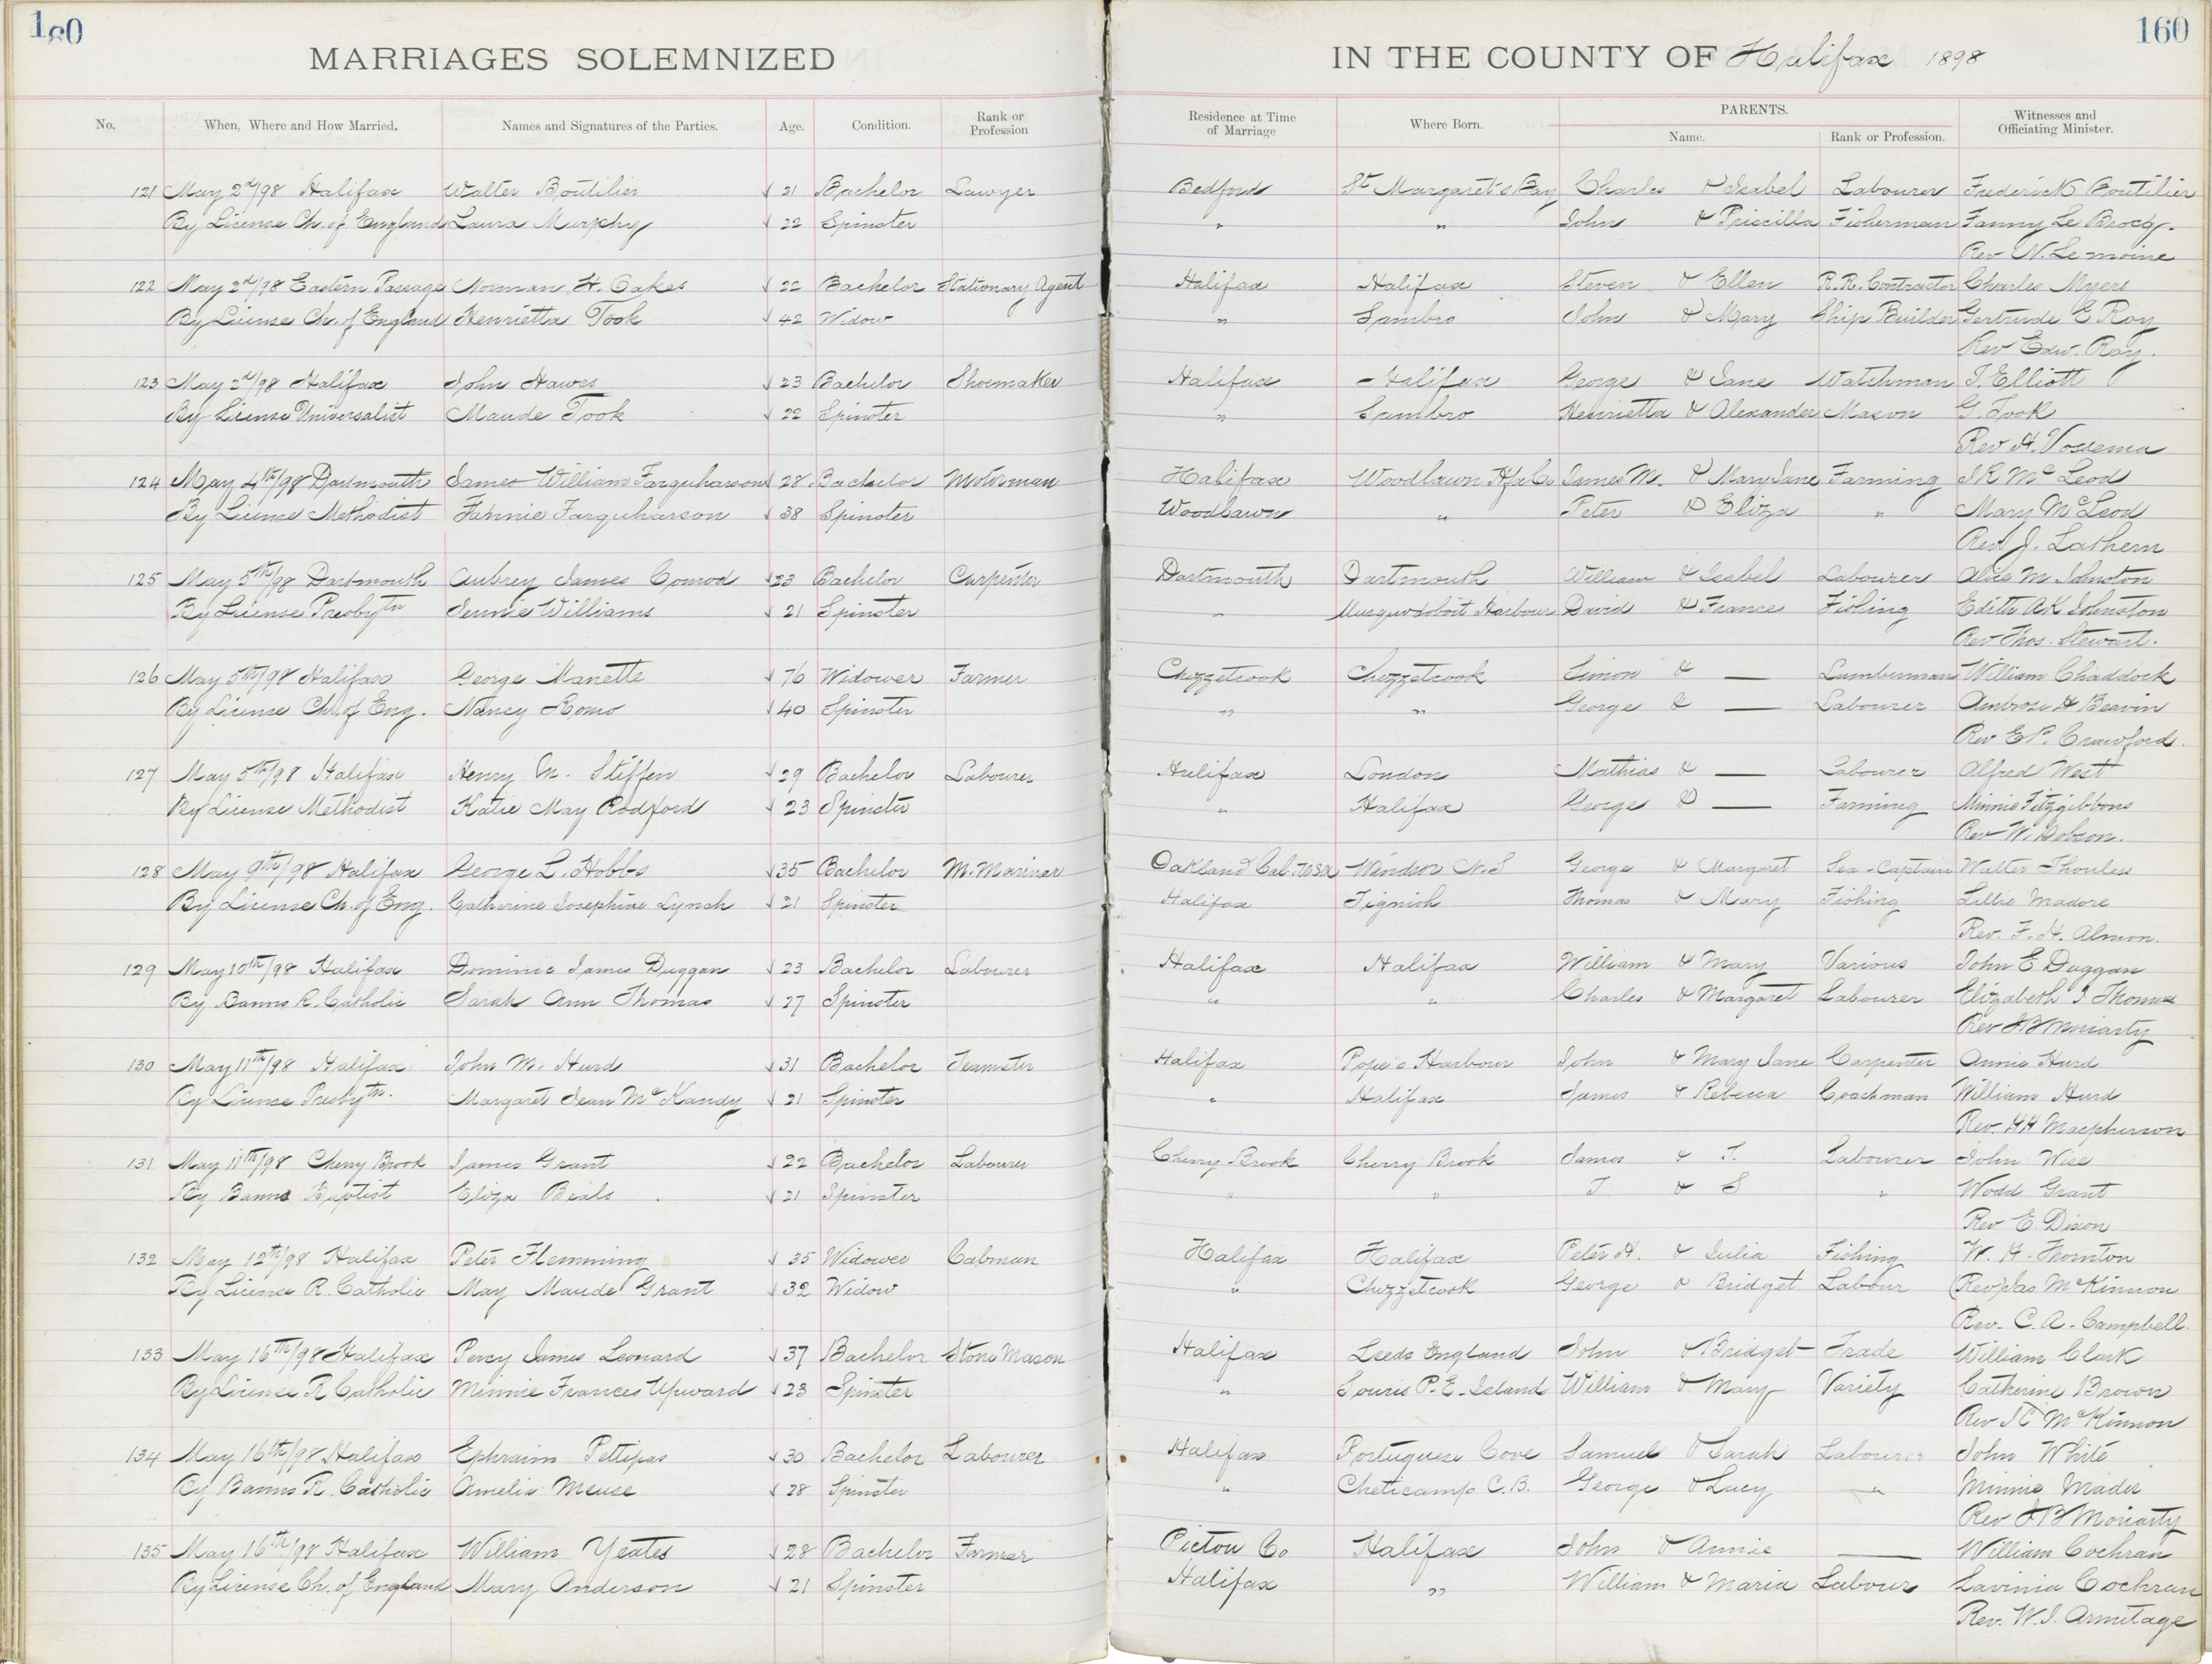 160 160
MARRIAGES SOLEMNIZED IN THE COUNTY OF Halifax 1898
No. When, Where and How Married. Names and Signatures of the Parties. Age. Condition. Rank or Profession Residence at Time of Marriage Where Born. PARENTS. Name. Rank or Profession. Witnesses and Officiating Minister.
121 May 2d/98 Halifax Walter Boutilier 21 Bachelor Lawyer Bedford St Margaret's Bay Charles & Isabel Labourer Frederick Boutilier
By License Ch. of England Laura Murphy 22 Spinster " " John & Priscilla Fisherman Fanny Le Brocq.
Rev N. Lemoine
122 May 2d/98 Eastern Passage Norman H. Oakes 22 Bachelor Stationary Agent Halifax Halifax Steven & Ellen R.R. Contractor Charles Myers
By License Ch. of England Henrietta Took 42 Widow " Sambro John & Mary Ship Builder Gertrude E Roy
Rev Edw. Roy.
123 May 2d/98 Halifax John Hawes 23 Bachelor Shoemaker Halifax Halifax George & Jane Watchman T. Elliott
By License Universalist Maude Took 22 Spinster " Sambro Henrietta & Alexander Mason G. Took
Rev H. Vossema
124 May 4th/98 Dartmouth James William Farquharson 28 Bachelor Motorman Halifax Woodlawn Hfx Co James M. & Mary Jane Farming J R McLeod
By License Methodist Fannie Farquharson 38 Spinster Woodlawn " Peter & Eliza " Mary McLeod
Rev J. Lathern
125 May 5th/98 Dartmouth Aubrey James Conrod 23 Bachelor Carpenter Dartmouth Dartmouth William & Isabel Labourer Alice M Johnston
By License Presbytn Jennie Williams 21 Spinster " Musquodoboit Harbour David & Frances Fishing Edith AK Johnston
Rev Thos. Stewart.
126 May 5th/98 Halifax George Manette 76 Widower Farmer Chezzetcook Chezzetcook Simon & — Lumberman William Chaddock
By License Ch. of Eng. Nancy Romo 40 Spinster " " George & — Labourer Ambrose H Beavin
Rev E P. Crawford.
127 May 5th/98 Halifax Henry M. Stiffen 29 Bachelor Labourer Halifax London Mathias & — Labourer Alfred West
By License Methodist Katie May Rodford 23 Spinster " Halifax George & — Farming Minnie Fitzgibbons
Rev W. Dobson.
128 May 9th/98 Halifax George L. Hobbs 35 Bachelor M. Mariner Oakland Cal. USA Windsor N.S George & Margaret Sea-Captain Walter Thouless
By License Ch. of Eng. Catherine Josephine Lynch 21 Spinster Halifax Tignish Thomas & Mary Fishing Lillie Madore
Rev. F. H. Almon.
129 May 10th/98 Halifax Dominic James Duggan 23 Bachelor Labourer Halifax Halifax William & Mary Various John E Duggan
By Banns R. Catholic Sarah Ann Thomas 27 Spinster " " Charles & Margaret Labourer Elizabeth J Thomas
Rev J B Moriarty
130 May 11th/98 Halifax John M. Hurd 31 Bachelor Teamster Halifax Pope's Harbour John & Mary Jane Carpenter Annie Hurd
By License Presbytn. Margaret Jean McKandy 21 Spinster " Halifax James & Rebecca Coachman William Hurd
Rev. HH Macpherson
131 May 11th/98 Cherry Brook James Grant 22 Bachelor Labourer Cherry Brook Cherry Brook James & T. Labourer John Wise
By Banns Baptist Eliza Beals 21 Spinster " " T & S " Wodd Grant
Rev E. Dixon
132 May 12th/98 Halifax Peter Flemming 35 Widower Cabman Halifax Halifax Peter H. & Julia Fishing W. H. Thornton
By License R. Catholic May Maude Grant 32 Widow " Chezzetcook George & Bridget Labour (Rev) Jas McKinnon
Rev. C. A. Campbell.
133 May 16th/98 Halifax Percy James Leonard 37 Bachelor Stone Mason Halifax Leeds England John & Bridget Trade William Clark
By License R Catholic Minnie Frances Upward 23 Spinster " Souris P.E. Island William & Mary Variety Catherine Brown
Rev J C McKinnon
134 May 16th/98 Halifax Ephraim Pettipas 30 Bachelor Labourer Halifax Portuguese Cove Samuel & Sarah Labourer John White
By Banns R. Catholic Amelia Meuse 28 Spinster " Cheticamp C.B. George & Lucy " Minnie Mader
Rev J B Moriarty
135 May 16th/98 Halifax William Yeates 28 Bachelor Farmer Pictou Co Halifax John & Annie — William Cochran
By License Ch. of England Mary Anderson 21 Spinster Halifax " William & Maria Labour Lavinia Cochran
Rev. W. J. Armitage